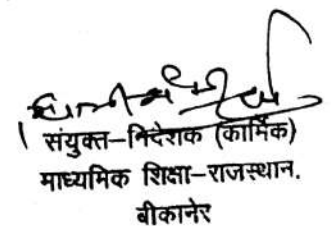 संयुक्त-निदेशक (कार्मिक)
माध्यमिक शिक्षा-राजस्थान.
बीकानेर